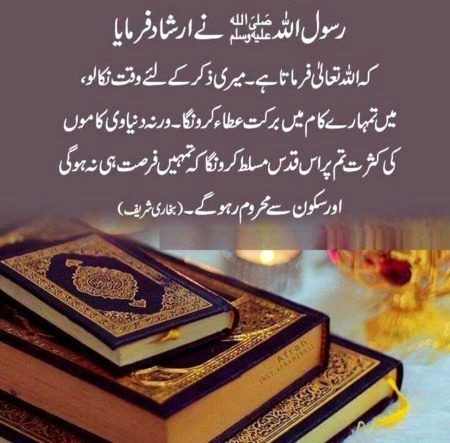 رسول اللہ ﷺ نے ارشاد فرمایا
کہ اللہ تعالیٰ فرماتا ہے۔ میری ذکر کے لئے وقت نکالو،
میں تمہارے کام میں برکت عطاء کرونگا۔ ورنہ دنیاوی کاموں
کی کثرت تم پر اس قدس مسلط کرونگا کہ تمہیں فرصت ہی نہ ہوگی
اور سکون سے محروم رہو گے۔ (بخاری شریف)
Afrah